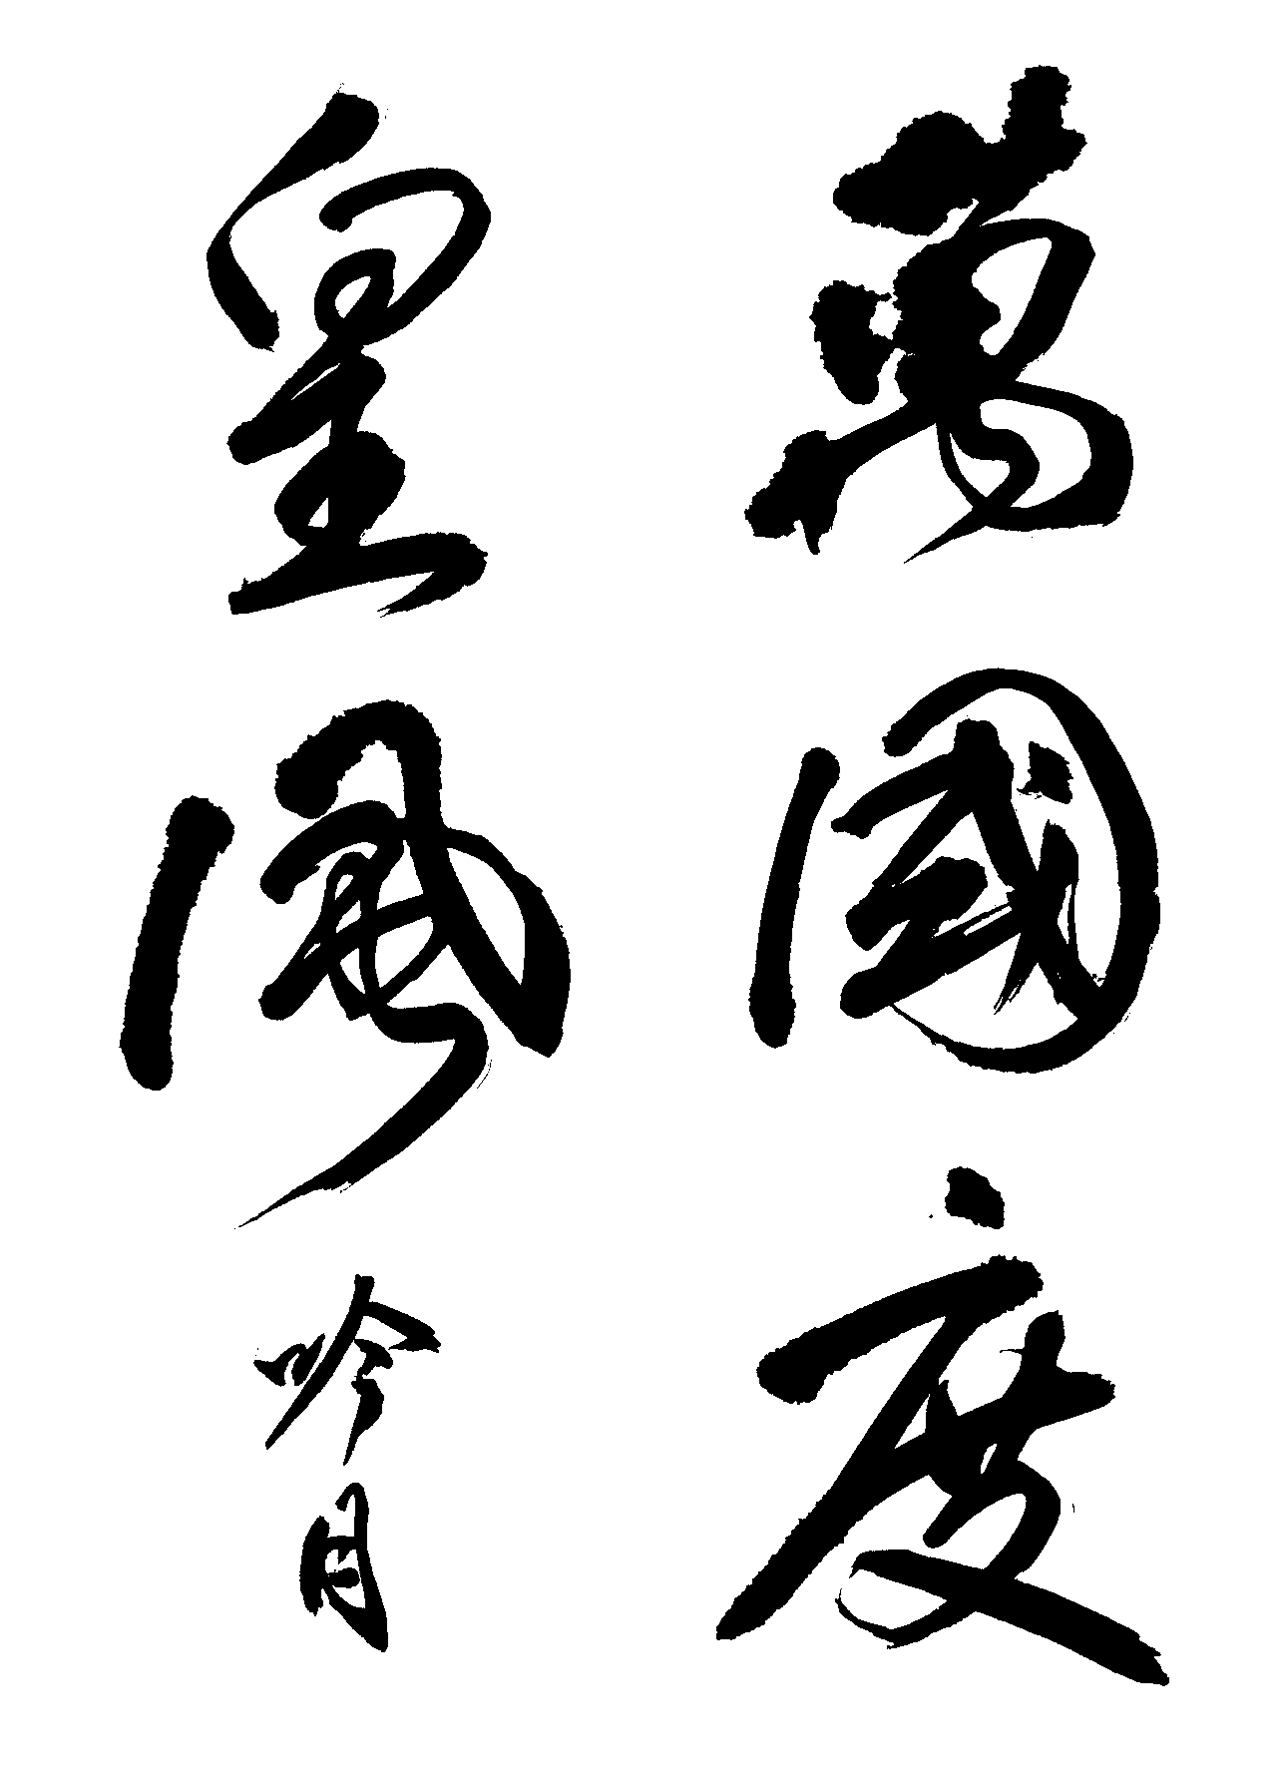 萬國度
皇風
吟月